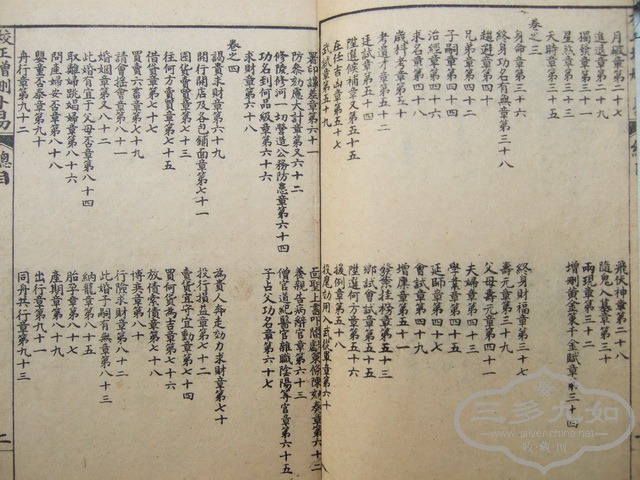 月破章第二十七
飛伏神章第二十八
進退章第二十九
隨鬼入墓章第三十
獨發章第三十一
兩現章第三十二
星煞章第三十三
增刪黃金策千金賦章第三十四
天時章第三十五
卷之三
身命章第三十六
終身財福章第三十七
終身功名有無章第三十八
壽元章第三十九
趨避章第四十
父母壽元章第四十一
兄弟章第四十二
夫婦章第四十三
子嗣章第四十四
學業章第四十五
治經章第四十六
延師章第四十七
求名章第四十八
會試章第四十九
歲科考章第五十
增廩章第五十一
考遺才章第五十二
發案挂榜章第五十三
廷試章第五十四
鄉試會試章第五十五
陞選候補章又第五十五
陞選何方章第五十六
在任吉凶章第五十七
援例章第五十八
武試章第五十九
効用入武從軍章第六十
署印謀差章第六十一
面聖上書叩閽獻策條陳劾奏章第六十二
防參劾慮大計章第又六十二
養親告病辭官章第六十三
修陵修河一切營造公務防患章第六十四
僧官道紀醫官雜職陰陽等官章第六十五
功名到何品級章第六十六
子占父功名章第六十七
求財章第六十八
卷之四
謁貴求財章第六十九
為貴人奔走効力求財章第七十
開行開店及各色鋪面章第七十一
投行損益章第七十二
囤貨賣貨章第七十三
賣貨宜守宜動章第七十四
往何方買賣章第七十五
買何貨為吉章第七十六
借貸章第七十七
放債索債章第七十八
買賣六畜章第七十九
博奕章第八十
請會搖會章第八十一
行險求財章第八十二
婚姻章第又八十二
此婚子嗣有無章第八十三
此婚有宜于父母否章第八十四
納寵章第八十五
取離婦跳婦章第八十六
胎孕章第八十七
問產婦安否章第八十八
產期章第八十九
嬰童否泰章第九十
出行章第九十一
舟行章第九十二
同舟共行章第九十三
校正增刪卜易
總目
二
三多九如
www.silver-chine.net
收藏網